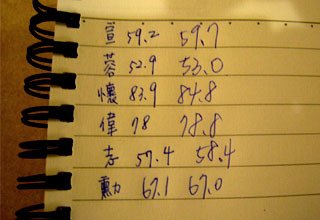 宣 59.2 59.7
蓉 52.9 53.0
懷 83.9 84.8
偉 78 78.8
志 57.4 58.4
勳 67.1 67.0